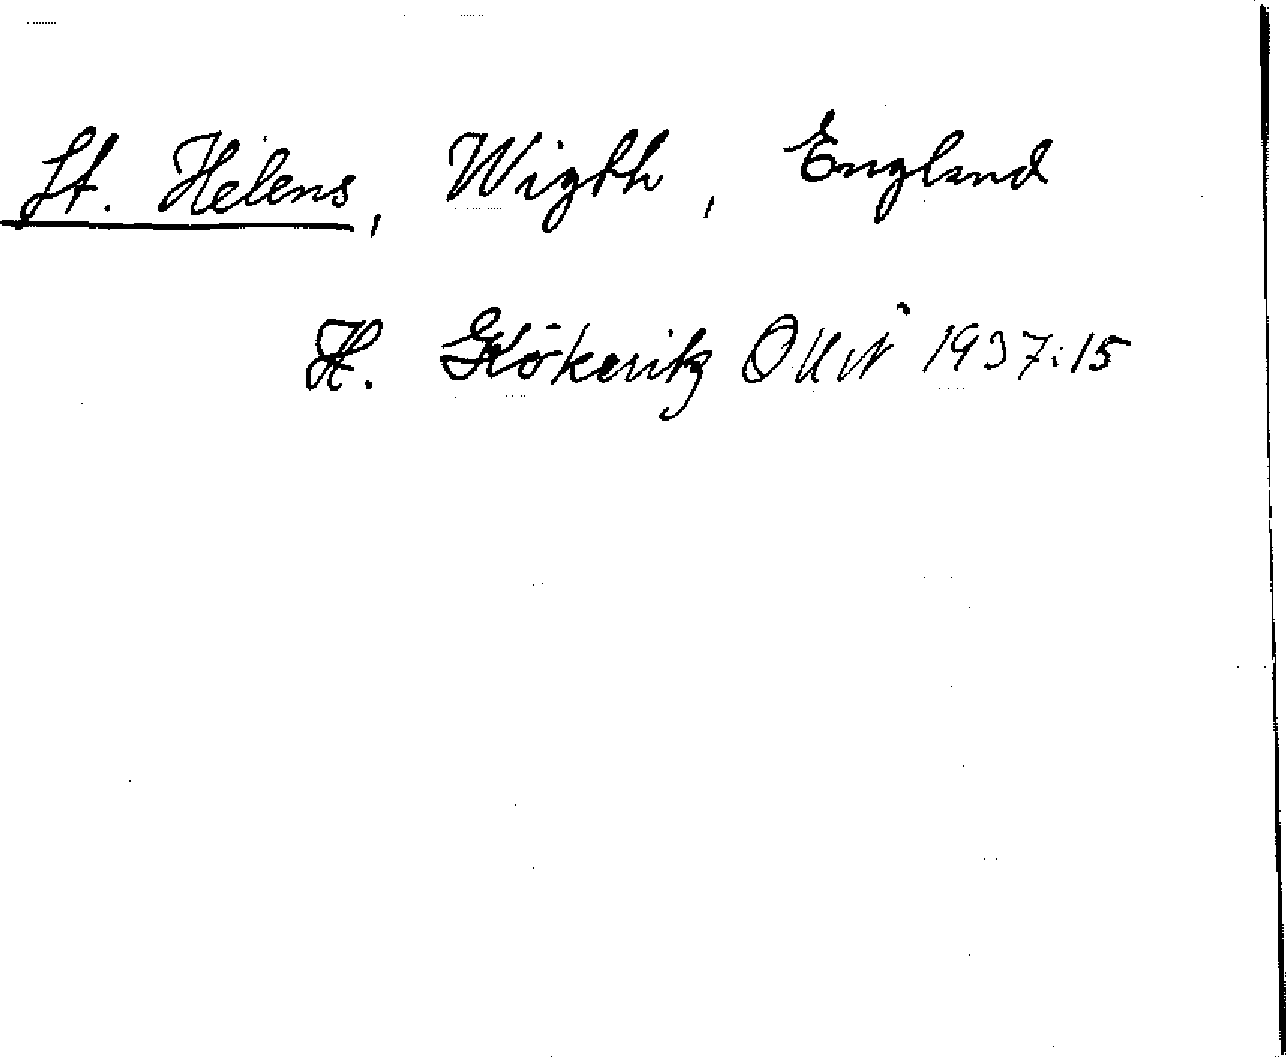 St. Helens, Wigth, England
H. Kökeritz OUÅ 1937:15